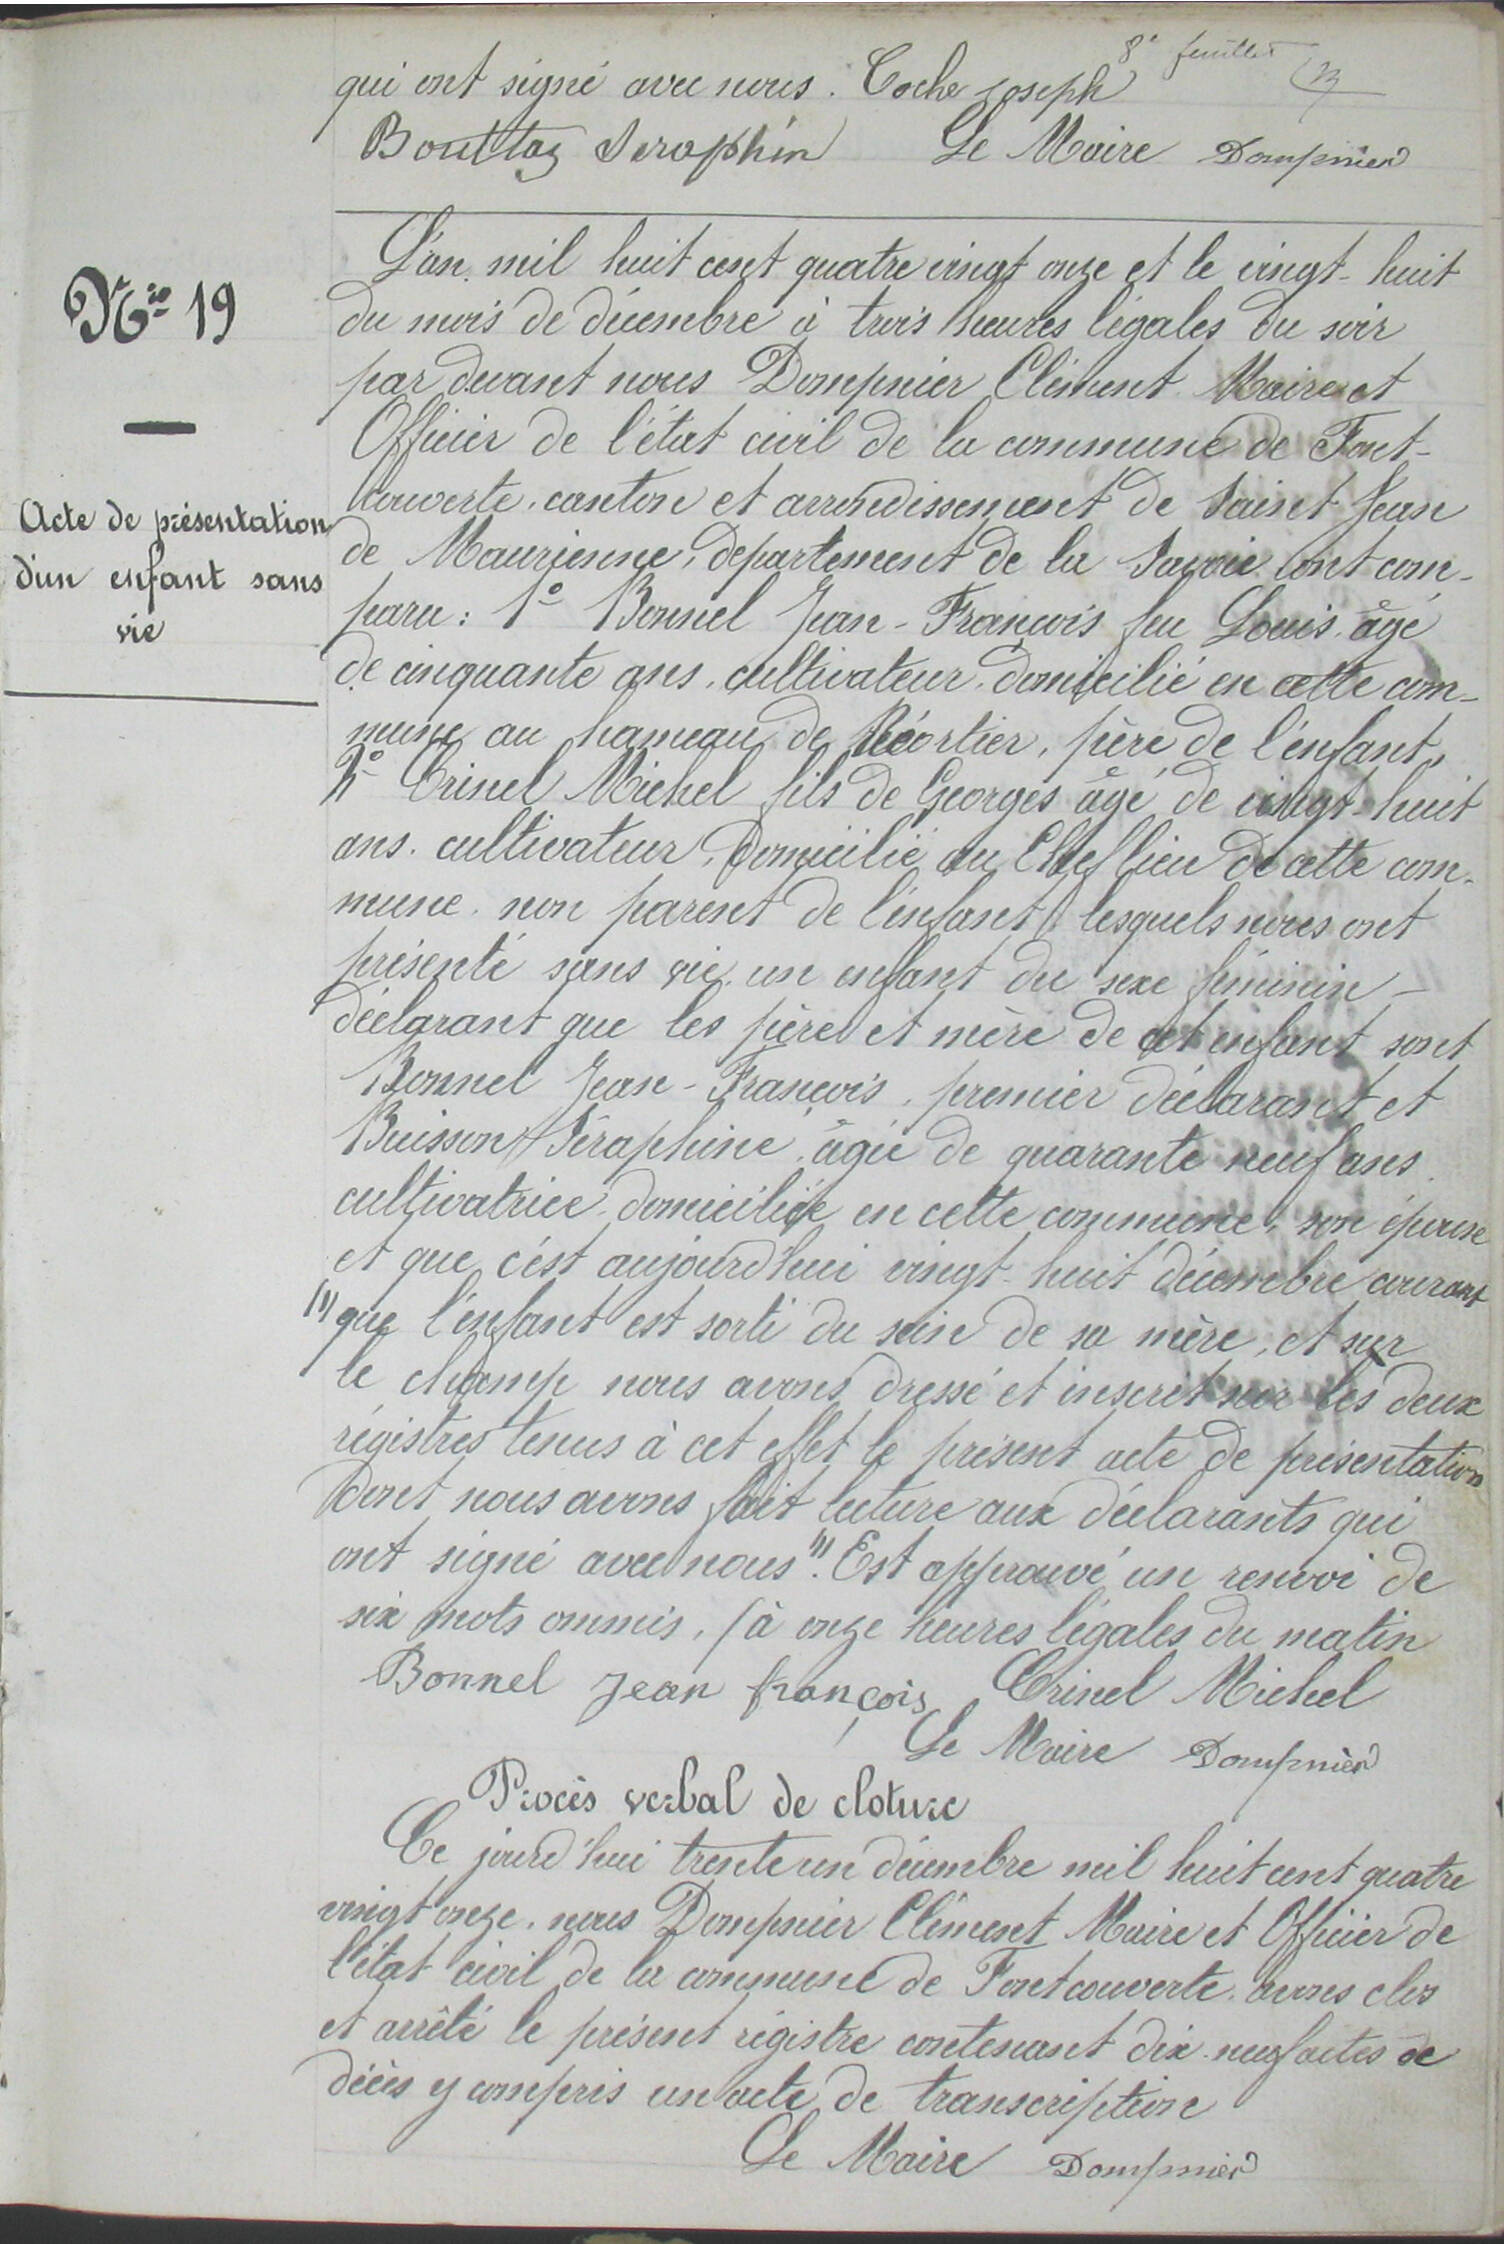 8e feuillet
qui ont signé avec nous. Coche Joseph
Bouttaz Seraphin Le Maire Dompnier
Nro 19
Acte de présentation
d'un enfant sans
vie
L'an mil huit cent quatre vingt onze et le vingt-huit
du mois de décembre à trois heures légales du soir
par devant nous Dompnier Clément Maire et
Officier de l'état civil de la commune de Font-
couverte, canton et arrondissement de Saint Jean
de Maurienne, département de la Savoie ont com-
paru : 1° Bonnel Jean-François feu Louis, âgé
de cinquante ans, cultivateur, domicilié en cette com-
mune au hameau de Réortier, père de l'enfant,
2° Crinel Michel fils de Georges âgé de vingt-huit
ans, cultivateur, domicilié au Chef lieu de cette com-
mune, non parent de l'enfant, lesquels nous ont
présenté sans vie, un enfant du sexe féminin -
déclarant que les père et mère de cet enfant sont
Bonnel Jean-François, premier déclarant et
Buisson Séraphine, âgée de quarante neuf ans
cultivatrice, domiciliée en cette commune, son épouse
et que c'est aujourd'hui vingt-huit décembre courant
(1) que l'enfant est sorti du sein de sa mère, et sur
le champ nous avons dressé et inscrit sur les deux
régistres tenus à cet effet le présent acte de présentation
dont nous avons fait lecture aux déclarants qui
ont signé avec nous (1). Est approuvé un renvoi de
six mots ommis, / à onze heures légales du matin
Bonnel Jean françois Crinel Michel
Le Maire Dompnier
Procès verbal de cloture
Ce jourd'hui trente un décembre mil huit cent quatre
vingt onze, nous Dompnier Clément Maire et Officier de
l'état civil de la commune de Fontcouverte, avons clos
et arrêté le présent régistre contenant dix-neuf actes de
décès y compris un acte de transcription
Le Maire Dompnier